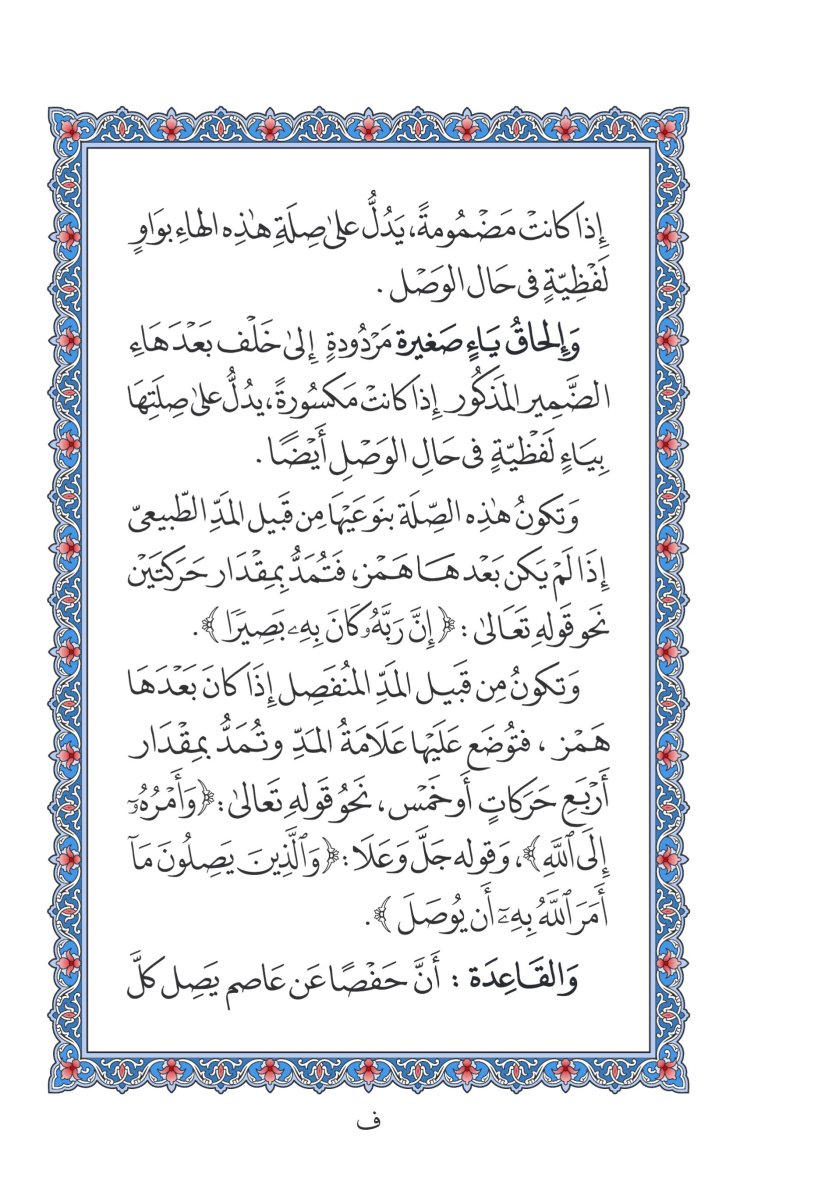 إِذَا كَانتْ مَضْمُومةً، يَدُلُّ عَلىٰ صِلَةِ هٰذِه الهاءِ بوَاوٍ
لَفْظِيّةٍ فى حَال الوَصْل .
وَإِلحَاقُ يَاءٍ صَغِيرة مَرْدُودةٍ إِلىٰ خَلْف بَعْدَ هَاءِ
الضَّمِير المَذكُور إِذَا كانتْ مَكسُورةً، يدُلُّ علىٰ صِلَتِهَا
بِيَاءٍ لَفْظيّةٍ فى حَالِ الوَصْلِ أَيْضًا .
وَتكونُ هٰذِه الصِّلَة بنَوعَيْهَا مِن قَبِيل المَدِّ الطّبيعىّ
إِذَا لَمْ يَكن بَعْدهَا هَمْز، فَتُمَدُّ بِمِقْدَار حَرَكتَيْن
نحَو قَولهِ تَعَالىٰ : ﴿ إِنَّ رَبَّهُۥ كَانَ بِهِۦ بَصِيرٗا ﴾ .
وَتكونُ مِن قَبيل المَدِّ المُنْفَصِل إِذَا كانَ بَعْدَهَا
هَمْز ، فتُوُضَع عَلَيْها عَلَامَةُ المَدِّ وتُمَدُّ بمِقْدَار
أَرْبَعِ حَرَكاتٍ أَو خَمْس، نَحوُ قَولهِ تَعَالىٰ : ﴿ وَأَمْرُهُۥٓ
إِلَى ٱللَّهِ ﴾ ، وَقولِه جَلَّ وَعَلَا : ﴿ وَٱلَّذِينَ يَصِلُونَ مَآ
أَمَرَ ٱللَّهُ بِهِۦٓ أَن يُوصَلَ ﴾ .
وَالقَاعِدَة : أَنَّ حَفْصًا عَن عَاصِم يَصِل كلَّ
ف